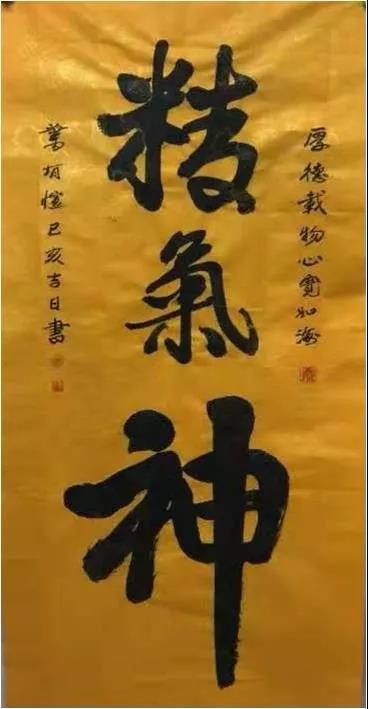 厚德載物心寬如海
精氣神
己亥吉日書